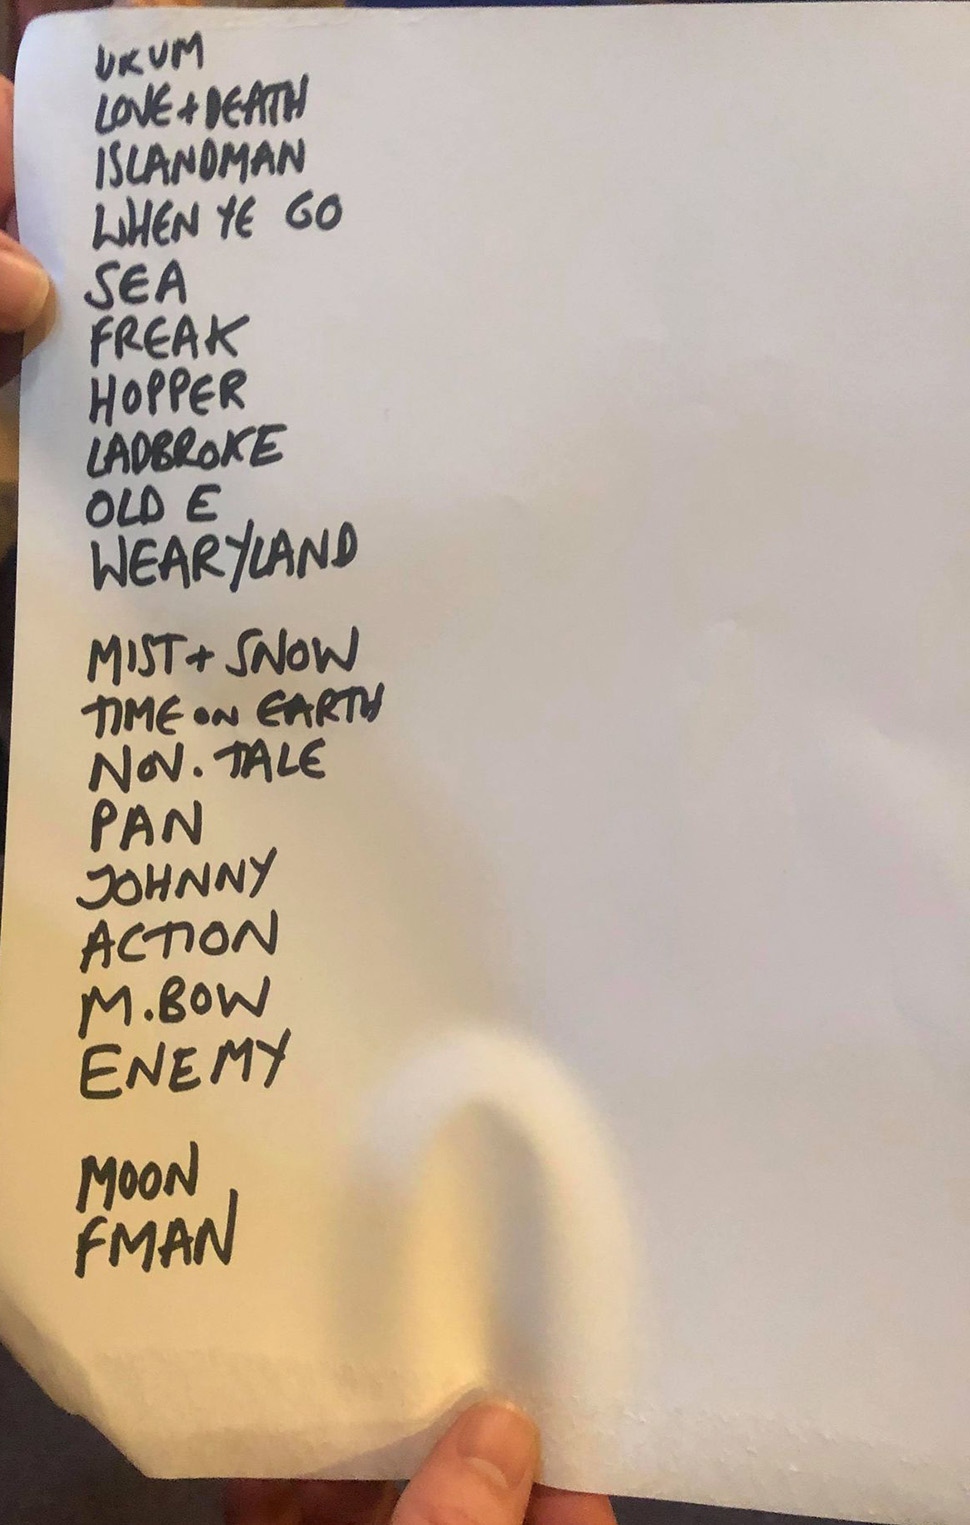 UKUM
LOVE + DEATH
ISLANDMAN
WHEN YE GO
SEA
FREAK
HOPPER
LADBROKE
OLD E
WEARYLAND
MIST + SNOW
TIME ON EARTH
NOV. TALE
PAN
JOHNNY
ACTION
M.BOW
ENEMY
MOON
FMAN